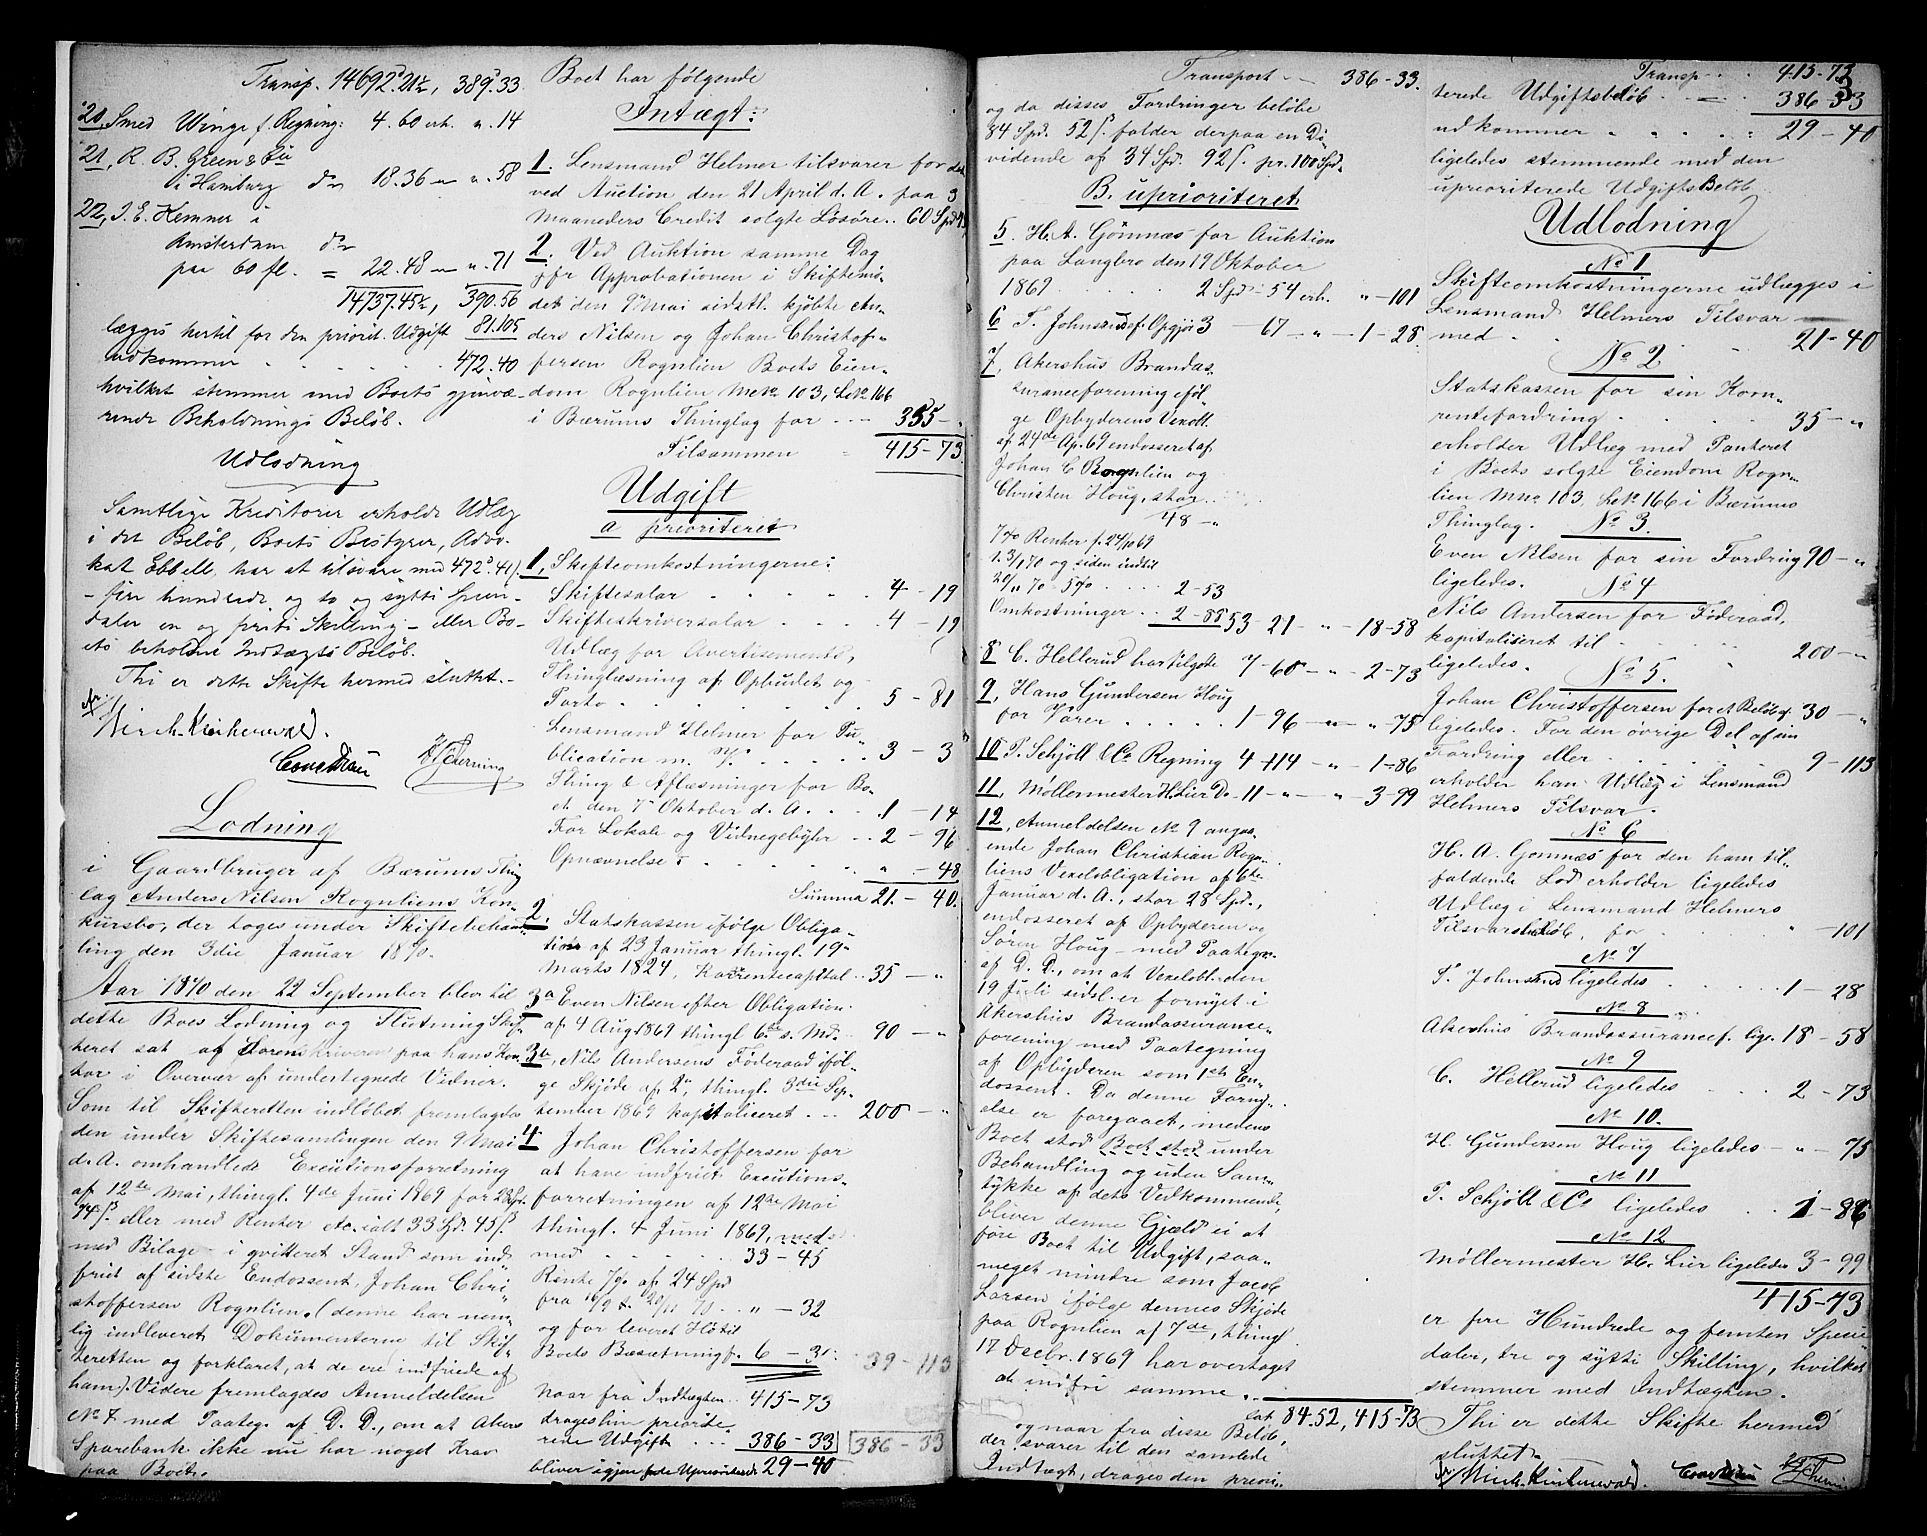 Transp. 14692.21½, 389.33
20, Smed Winge f. Regning: 4.60 erh. „ . 14
21, R. B. Green & Cu
i Hamburg do 18.36 „ „ . 58
22, J. E. Kemner i
Amsterdam do
paa 60 fl. = 22.48 „ „ . 71
14737.45½, 390.56
lægges hertil for den priorit. Udgift 81.105
udkommer . . . . 472.40
hvilket stemmer med Boets gjenvæ-
rende Beholdnings Beløb.
Udlodning
Samtlige Kreditorer erholde Udlæg
i det Beløb, Boets Bestyrer, Advo-
kat Ebbell, har at tilsvare med 472.41
- fire hundrede og to og sytti Spesi-
daler en og førti Skilling - eller Bo-
ets beholdne Indtægts Beløb.
Thi er dette Skifte hermed sluttet. -
Lodning
i Gaardbruger af Bærums Thing
lag Anders Nilsen Rognliens Kon-
kursbo, der toges under Skiftebehand-
ling den 3die Januar 1870.
Aar 1870 den 22 September blev til
dette Boes Lodning og Slutning Skif-
teret sat af Sorenskriveren paa hans Kon-
tor i Overvær af undertegnede Vidner.
Som til Skifteretten indløbet fremlagdes
den under Skiftesamlingen den 9 Mai
d. A. omhandlede Executionsforretning
af 12te Mai, thingl. 4de Juni 1869 for 28 Spd.
94 s. eller med Renter etc. ialt 33 Spd. 45 s.
med Bilage - i qvitteret Stand som ind-
friet af sidste Endossent, Johan Chri-
stoffersen Rognlien. (denne har nem-
lig indleveret Dokumenterne til Skif-
teretten og forklaret, at de ere indfriede af
ham). Videre fremlagdes Anmeldelsen
No 7 med Paateg. af D. D., om at Akers
Sparebank ikke nu har noget Krav
paa Boet.
Boet har følgende
Intægt:
1. Lensmand Helmer tilsvarer for det
ved Auction den 21 April d. A. paa 3
Maaneders Credit solgte Løsøre . . 60 Spd 73
2. Ved Auktion samme Dag
jfr Approbationen i Skiftemø-
det den 9 Mai sidstl. kjøbte An-
ders Nilsen og Johan Christof-
fersen Rognlien Boets Eien-
dom Rognlien MNo 103, LNo 166
i Bærums Thinglag for . . . 355 - „
Tilsammen 415 - 73
Udgift
a prioriteret
1, Skifteomkostningerne:
Skiftesalar . . . . 4 - 19
Skifteskriversalar . . . . 4 - 19
Udlæg for Avertisements,
Thinglæsning af Opbudet og
Porto . . . . . . 5 - 81
Lensmand Helmer for Pu-
blication m. V. . . . . 3 - 3
Thing & Aflæsninger for Bo-
et den 7 Oktober d. A. . . 1 - 14
For Lokale og Vidnegebyhr . . 2 - 96
Opnævnelse . . . . „ - 48
Summa 21. - 40.
2. Statskassen ifølge Obliga-
tion af 23 Januar thingl. 19
Marts 1824, Kornrentecapital . . 35 - „
3a Even Nilsen efter Obligation
af 4 Aug 1869 thingl 6te s. Md. . 90 - „
3b, Nils Andersens Føderaad iføl-
ge Skjøde af 2n, thingl. 3die Sep-
tember 1869 kapitaliseret . . . 200 - „
4 Johan Christoffersen for
at have indfriet Executions-
forretningen af 12te Mai
thingl. 4 Juni 1869, med
med . . . . . 33 - 45
Rente 7% af 24 Spd
fra 16/9 t. 20/11 70 . . „ - 32
og for leveret Hø til
Boets Besætning 6 - 30. 39 - 113
naar fra Indtægten . . 415 - 73
drages him priorite
rede Udgift . . . 386 - 33 386 - 33
bliver igjen for de Upriroriterede 29 - 40
Transport . . . 386 - 33.
og da disses Fordringer beløbe
84 Spd. 52 s. falder derpaa en Di-
vidende af 34 Spd. 92 s. pr. 100 Spd.
B. uprioriteret
5. H. A. Gomnæs for Auktion
paa Langbro den 19 Oktober
1869 . . . . 2 Spd - 54 erh. „ - 101
6 T. Johnsrud ef. Opgjør 3 - 67 - „ - 1 - 28
7, Akershus Brandas-
suranceforening iføl-
ge Opbyderens Vexelobl.
af 24de Ap. 69 endosseret af
Johan C Rognlien og
Christen Houg, stor . .
48 - „
7% Renter f. 24/10 69
t. 3/1 70 og siden indtil
20/11 70 - 5% . . . 2 - 53
Omkostninger . . 2 - 88 53 - 21 - „ - 18 - 58
8 C. Hellerud har tilgode 7 - 60 - „ - 2 - 73
9, Hans Gundersen Houg
for Varer . . . . 1 - 96 - „ - „ 75
10 P. Schjöll & Co Regning 4 - 114 - „ - 1 - 86
11, Møllermester H. Lier Do - 11 - „ - „ 3 - 99
12, Anmeldelsen No 9 angaa-
ende Johan Christian Rogn-
liens Vexelobligation af 6te
Januar d. A., stor 28 Spd.,
endosseret af Opbyderen og
Søren Houg - med Paategn.
af D. D., om at Vexelobl. den
19 Juli sidstl. er fornyet i
Akershus Brandassurance-
forening med Paategning
af Opbyderen som 1ste En-
dossent. Da denne Forny-
else er foregaaet, medens
Boet stod Boet stod under
Behandling og uden Sam-
tykke af dets Vedkommende,
bliver denne Gjæld ei at
føre Boet til Udgift, saa-
meget mindre som Jacob
Larsen ifølge dennes Skjøde
paa Rognlien af 7de, thingl
17 Decbr. 1869 har overtaget
at indfri samme . .
Lat. 84.52, 415 - 73
og naar fra disse Beløb,
der svarer til den samlede
Indtægt, drages den priori-
Transp . . . 415 - 73
terede Udgiftsbeløb . . 386 33
udkommer . . . 29 - 40
ligeledes stemmende med den
uprioriterede Udgifts Beløb.
Udlodning
No 1
Skifteomkostningerne udlægges i
Lensmand Helmers Tilsvar
med . . . . 21 - 40
No 2.
Statskassen for sin Korn-
rentefordring . . . . 35 - „
erholder Udlæg med Panteret
i Boets solgte Eiendom Rogn-
lien MNo 103, LNo 166 i Bærums
Thinglag. No 3.
Even Nilsen for sin Fordring 90 - „
ligeledes. No 4
Nils Andersen for Føderaad,
kapitaliseret til . . . . 200 - „
ligeledes. No 5.
Johan Christoffersen for et Beløb af 30 - „
ligeledes. For den øvrige Del af sin
Fordring eller . . . . 9 - 113
erholder han Udlæg i Lensmand
Helmers Tilsvar.
No 6
H. A. Gomnæs for den ham til-
faldende Lod erholder ligeledes
Udlæg i Lensmand Helmers
Tilsvarsbeløb, for . . . „ - 101
No 7
T. Johnsrud ligeledes . . . 1 - 28
No 8
Akershus Brandassurancef. lige. 18 - 58
No 9
C. Hellerud ligeledes . . . 2 - 73
No 10.
H. Gundersen Houg ligeledes - „ - 75
No 11
P. Schjöll & Co ligeledes . . 1 - 86
No 12
Møllermester H. Lier ligeledes 3 - 99
415 - 73
er fire Hundrede og femten Specie
daler, tre og sytti Skilling, hvilket
stemmer med Indtægten.
Thi er dette Skifte hermed
sluttet.